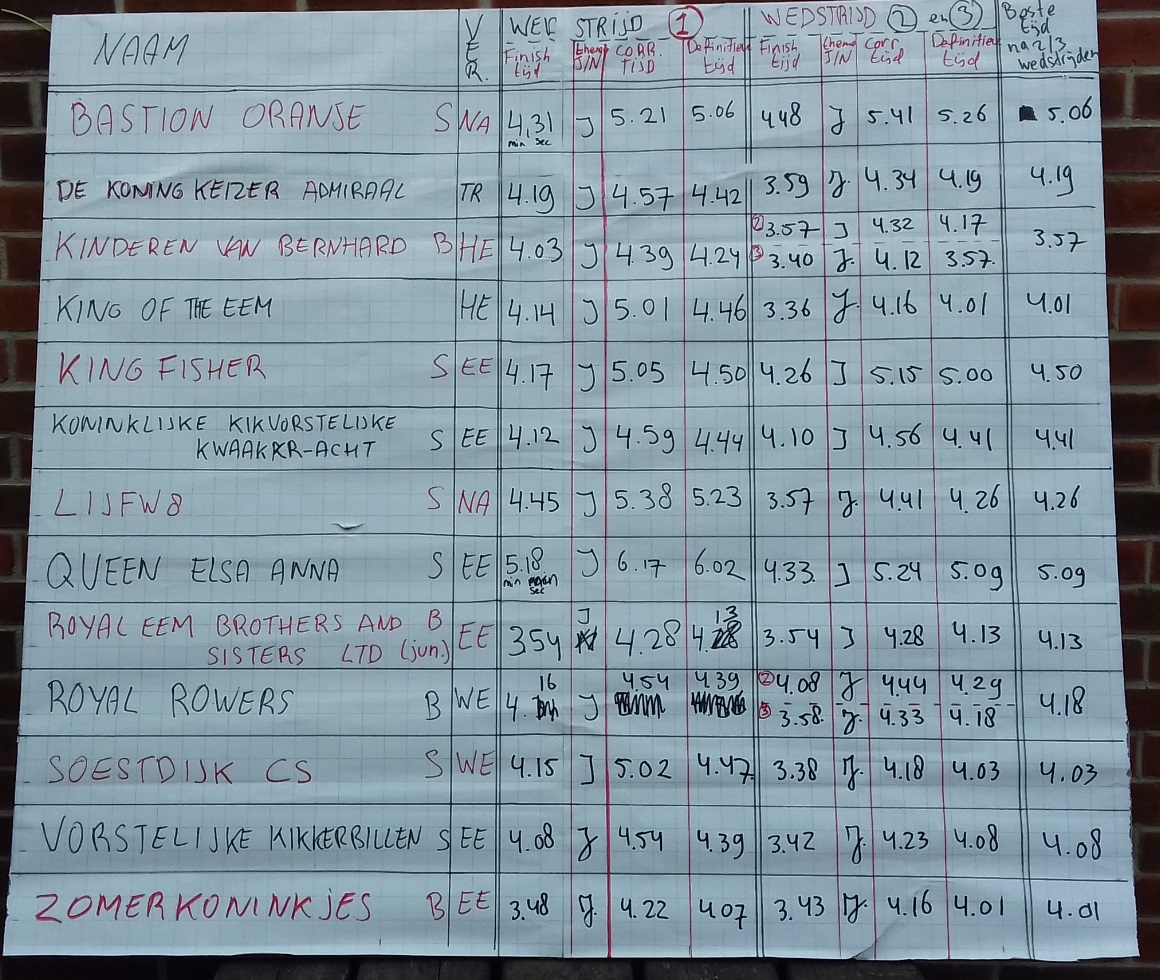 NAAM VER. WEDSTRIJD 1 WEDSTRIJD 2 en 3 Beste tijd na 2/3 wedstrijden
Finish tijd Thema J/N CORR. TIJD Definitieve tijd Finish tijd thema J/N Corr tijd Definitieve tijd
BASTION ORANJE S NA 4,31 min sec J 5.21 5.06 4.48 J 5.41 5.26 5.06
DE KONING KEIZER ADMIRAAL TR 4.19 J 4.57 4.42 3.59 J. 4.34 4.19 4.19
KINDEREN VAN BERNHARD B HE 4.03 J 4.39 4.24 2 3.57 J 4.32 4.17 3.57
3 3.40 J. 4.12 3.57.
KING OF THE EEM HE 4.14 J 5.01 4.46 3.36 J. 4.16 4.01 4.01
KING FISHER S EE 4.17 J 5.05 4.50 4.26 J 5.15 5.00 4.50
KONINKLIJKE KIKVORSTELIJKE
KWAAKKR-ACHT S EE 4.12 J 4.59 4.44 4.10 J 4.56 4.41 4.41
LIJFW8 S NA 4.45 J 5.38 5.23 3.57 J. 4.41 4.26 4.26
QUEEN ELSA ANNA S EE 5.18 min sec J 6.17 6.02 4.33. J 5.24 5.09 5.09
ROYAL EEM BROTHERS AND B
SISTERS LTD (jun.) EE 3.54 J 4.28 4.13 3.54 J 4.28 4.13 4.13
ROYAL ROWERS B WE 4.16 J 4.54 4.39 2 4.08 J 4.44 4.29 4.18
3 3.58. J. 4.33 4.18
SOESTDIJK CS S WE 4.15 J 5.02 4.47 3.38 J. 4.18 4.03 4.03
VORSTELIJKE KIKKERBILLEN S EE 4.08 J 4.54 4.39 3.42 J. 4.23 4.08 4.08
ZOMERKONINKJES B EE 3.48 J. 4.22 4.07 3.43 J. 4.16 4.01 4.01